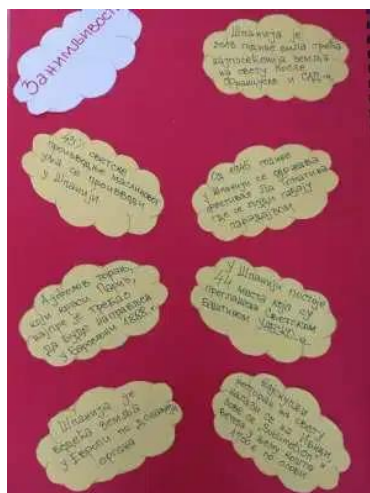 Занимљивости
Шпанија је
2015 године била трећа
најпосећенија земља
на свету после
Француске и САД-а.
43% светске
производње маслиновог
уља се производи
у Шпанији
Од 1945 године
у Шпанији се одржава
фестивал Ла Томатина
где се људи гађају
парадајзом
Ајфелов торањ,
који краси Париз,
најпре је требао
да буде направљен
у Барселони 1888 г.
У Шпанији постоје
44 места која су
проглашена Светском
баштином УНЕСКО-а
Шпанија је
водећа земља
у Европи по донацији
органа
Најскупљи
ресторан на свету
налази се на Ибици
зове се "Sublimotion" и
вечера у њему кошта
1700 € по особи